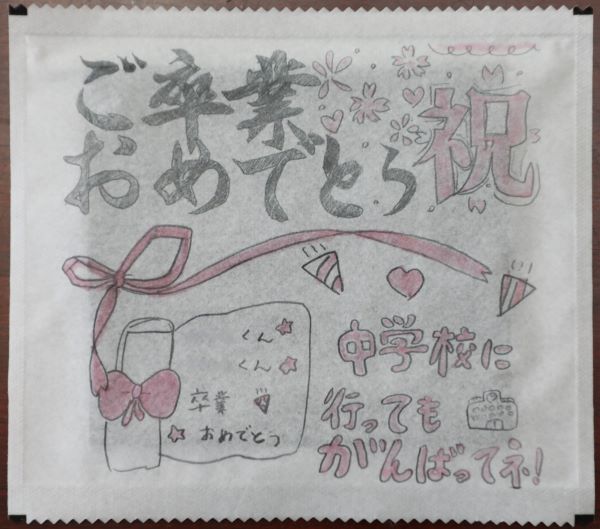 ご卒業
おめでとう
祝
くん
くん
卒業
おめでとう
中学校に
行っても
がんばってネ!